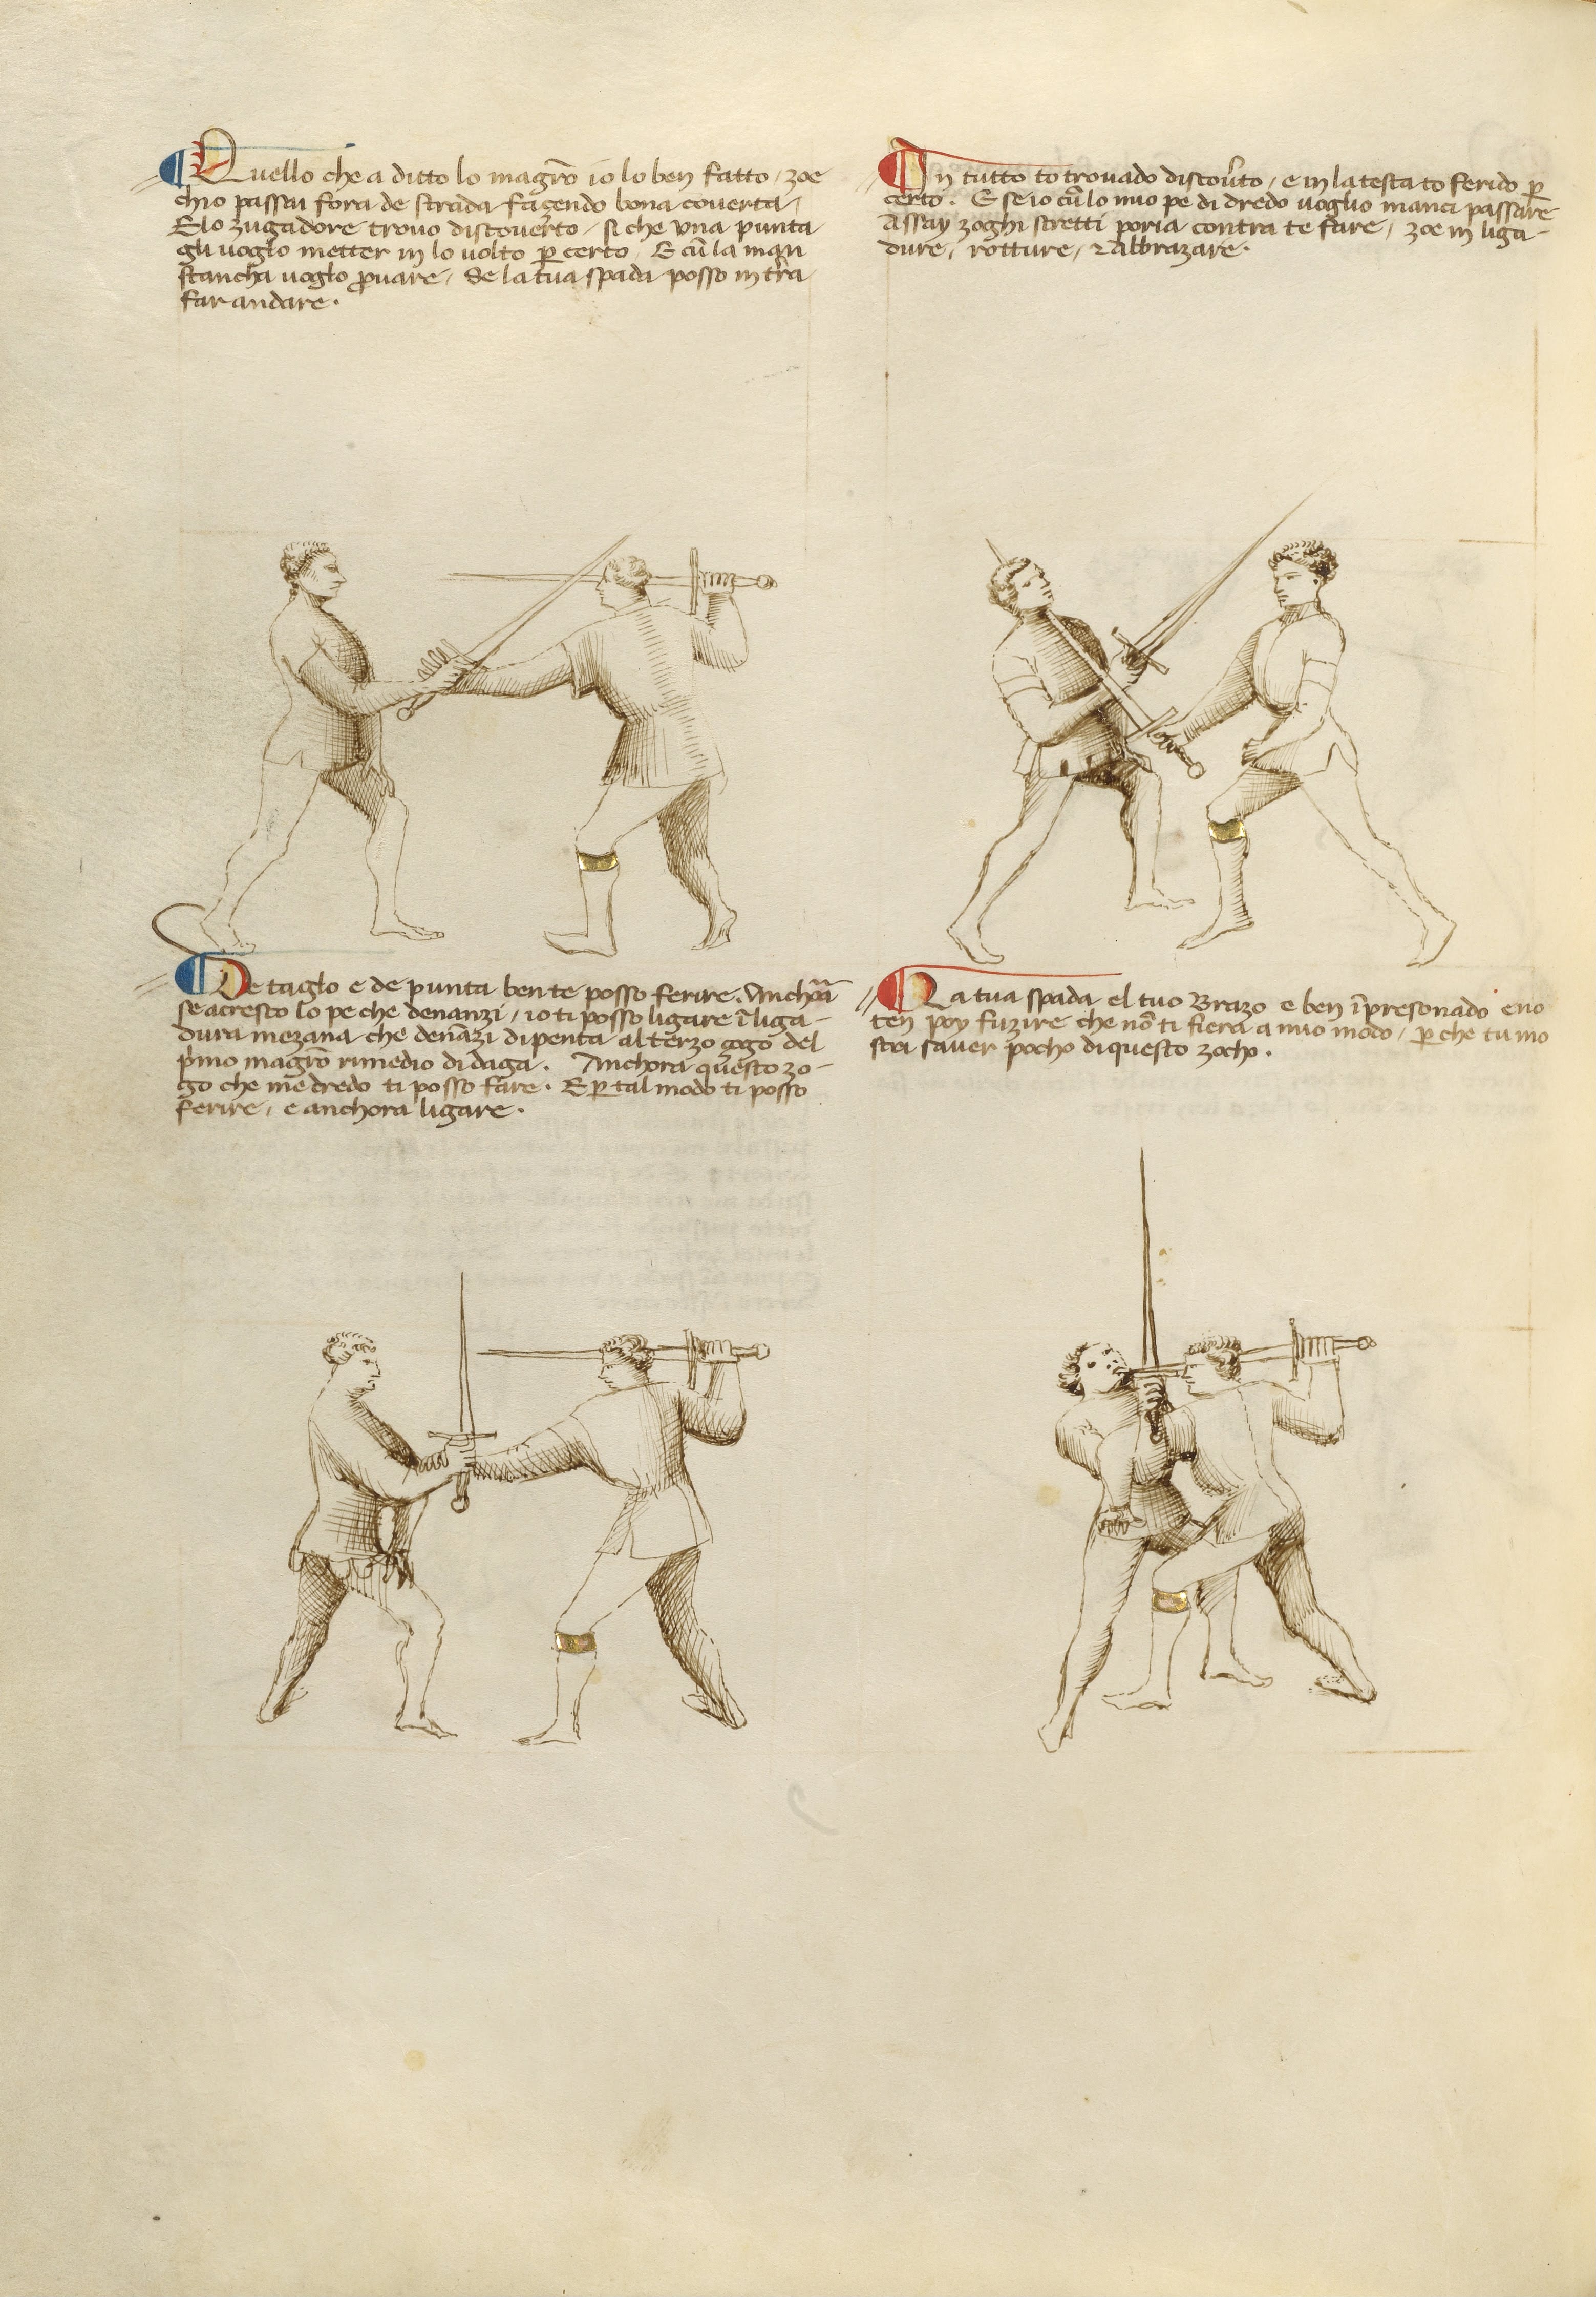 Quello che a ditto lo magrō io lo ben fatto / zoe
chio passai fora de strada fazendo bona coverta /
E lo zugadore trovo discoverto / si che una punta
gli voglo metter in lo volto p certo / E cū la man
stancha voglo provare / Se la tua spada posso in tr̄a
far andare .
In tutto to trovado discov̄to / e in la testa to ferido p
certo . E se io cū lo mio pe di dredo voglio inanci passare
Assay zoghi stretti poria contra te fare / zoe in liga-
dure / rotture / ⁊ Abbrazare .
De taglo e de punta ben te posso ferire . Anchōa
se acresco lo pe che denanzi / io ti posso ligare ī liga-
dura mezana che denāzi dipenta al terzo gogo del
pimo magrō rimedio di daga . Anchora questo zo-
go che me dredo ti posso fare . E p tal modo ti posso
ferire / e anchora ligare .
La tua spada el tuo Brazo e ben īpresonado e no
ten poy fuzire che nō ti fiera a mio modo / p che tu mo
stri saver pocho di questo zocho .